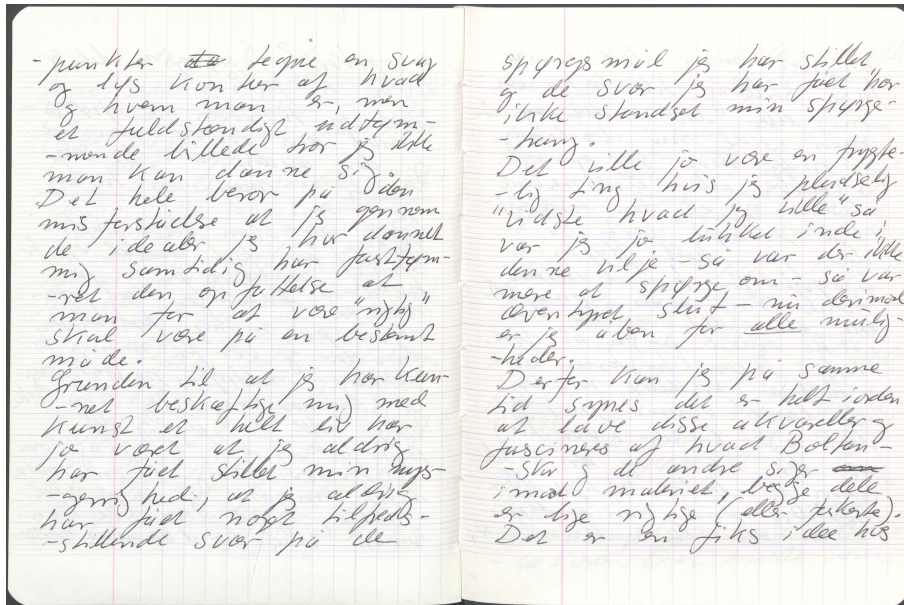 - punkter tegne en svag
og lys kontur af hvad
og hvem man er, men
et fuldstændigt udtøm-
-mende billede tror jeg ikke
man kan danne sig.
Det hele beror på den
misforståelse at jeg gennem
de idealer jeg har dannet
mig samtidig har fasttøm-
-ret den opfattelse at
man for at være "rigtig"
skal være på en bestemt
måde.
Grunden til at jeg har kun-
-net beskæftige mig med
kunst et helt liv har
jo været at jeg aldrig
har fået stillet min nys-
-gerrighed, at jeg aldrig
har fået noget tilfreds-
-stillende svar på de
spørgsmål jeg har stillet
og de svar jeg har fået har
ikke standset min spørge-
-trang.
Det ville jo være en frygte-
-lig ting hvis jeg pludselig
"vidste hvad jeg ville" så
var jeg jo lukket inde i
denne vilje - så var der ikke
mere at spørge om - så var
eventyret slut - nu derimod
er jeg åben for alle mulig-
-heder.
Derfor kan jeg på samme
tid synes det er helt iorden
at lave disse akvareller og
fascineres af hvad Boltan-
-ski og de andre siger
imod maleriet, begge dele
er lige rigtige (eller forkerte).
Det er en fiks idee hos